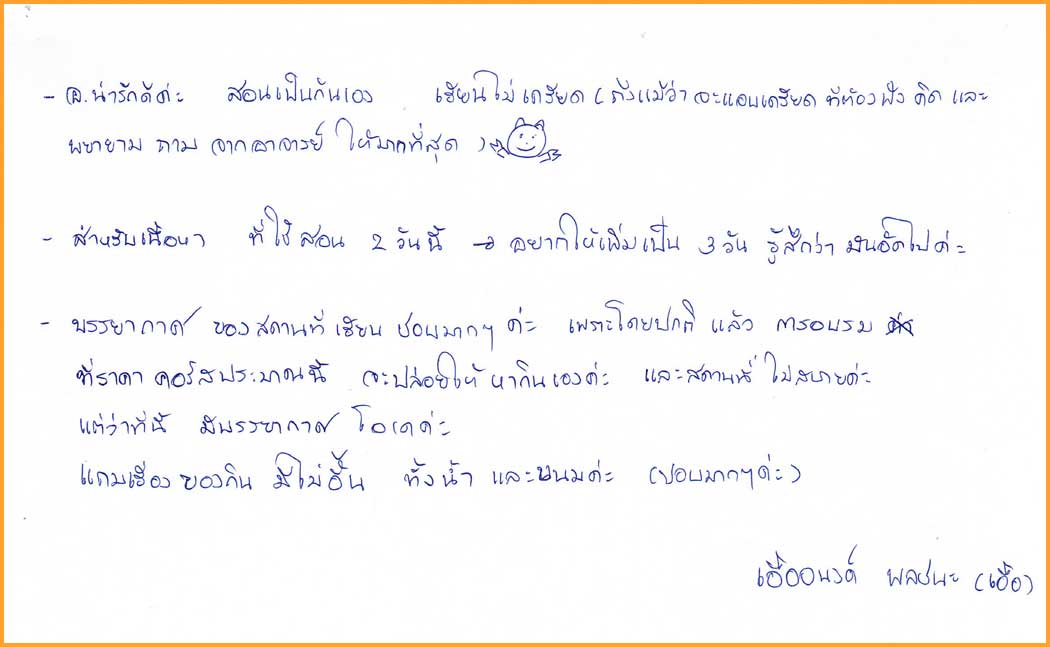 - อ.น่ารักดีค่ะ สอนเป็นกันเอง เรียนไม่เครียด (ถึงแม้ว่า จะแอบเครียด ที่ต้องฟัง คิด และ
พยายาม ถาม จากอาจารย์ ให้มากที่สุด )
- สำหรับเนื้อหา ที่ใช้สอน 2 วันนี้ → อยากให้เพิ่มเป็น 3 วัน รู้สึกว่า มันอัดไปค่ะ
- บรรยากาศ ของสถานที่ เรียน ชอบมากๆ ค่ะ เพราะโดยปกติ แล้ว การอบรม
ที่ราคา คอร์สประมาณนี้ จะปล่อยให้ หากินเองค่ะ และสถานที่ ไม่สบายค่ะ
แต่ว่าที่นี่ มีบรรยากาศ โอเคค่ะ
แถมเรื่อง ของกิน มีไม่อั้น ทั้งน้ำ และขนมค่ะ (ชอบมากๆค่ะ)
เอื้ออนงค์ พลชนะ (เอื้อ)